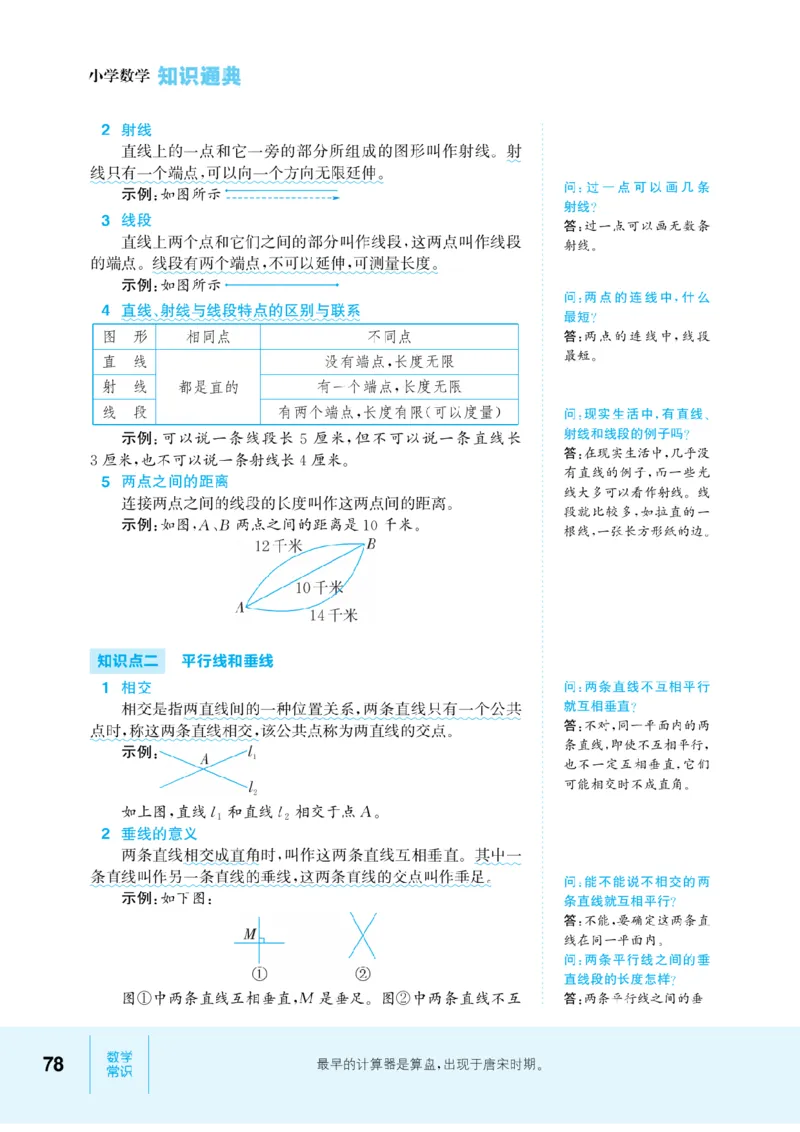 小学数学 知识通典
2 射线
直线上的一点和它一旁的部分所组成的图形叫作射线。射
线只有一个端点,可以向一个方向无限延伸。
示例:如图所示
3 线段
直线上两个点和它们之间的部分叫作线段,这两点叫作线段
的端点。线段有两个端点,不可以延伸,可测量长度。
示例:如图所示
4 直线、射线与线段特点的区别与联系
图 形 相同点 不同点
直 线 没有端点,长度无限
射 线 都是直的 有一个端点,长度无限
线 段 有两个端点,长度有限(可以度量)
示例:可以说一条线段长 5 厘米,但不可以说一条直线长
3 厘米,也不可以说一条射线长 4 厘米。
5 两点之间的距离
连接两点之间的线段的长度叫作这两点间的距离。
示例:如图,A、B 两点之间的距离是 10 千米。
12千米 B
10千米
A
14千米
知识点二 平行线和垂线
1 相交
相交是指两直线间的一种位置关系,两条直线只有一个公共
点时,称这两条直线相交,该公共点称为两直线的交点。
示例:
A l₁
l₂
如上图,直线 l₁ 和直线 l₂ 相交于点 A。
2 垂线的意义
两条直线相交成直角时,叫作这两条直线互相垂直。其中一
条直线叫作另一条直线的垂线,这两条直线的交点叫作垂足。
示例:如下图:
M
① ②
图①中两条直线互相垂直,M 是垂足。图②中两条直线不互
问:过一点可以画几条
射线?
答:过一点可以画无数条
射线。
问:两点的连线中,什么
最短?
答:两点的连线中,线段
最短。
问:现实生活中,有直线、
射线和线段的例子吗?
答:在现实生活中,几乎没
有直线的例子,而一些光
线大多可以看作射线。线
段就比较多,如拉直的一
根线,一张长方形纸的边。
问:两条直线不互相平行
就互相垂直?
答:不对,同一平面内的两
条直线,即使不互相平行,
也不一定互相垂直,它们
可能相交时不成直角。
问:能不能说不相交的两
条直线就互相平行?
答:不能,要确定这两条直
线在同一平面内。
问:两条平行线之间的垂
直线段的长度怎样?
答:两条平行线之间的垂
78
数学
常识
最早的计算器是算盘,出现于唐宋时期。